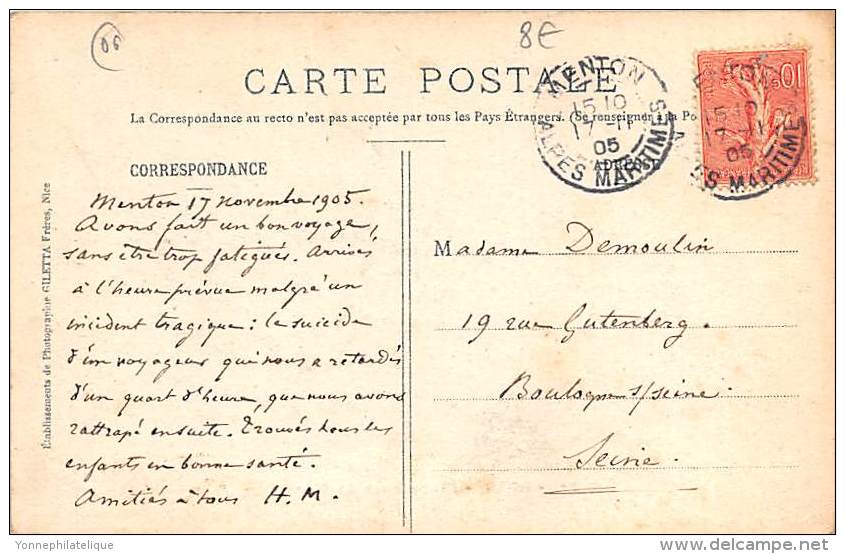 06
8€
CARTE POSTALE
La Correspondance au recto n'est pas acceptée par tous les Pays Étrangers. (Se renseigner à la Po
MENTON
15 10
17 -11
05
ALPES MARITIMES
10
15 10
05
MARITIMES
CORRESPONDANCE
Menton 17 novembre 1905.
Avons fait un bon voyage,
sans être trop fatigués. Arrivés
à l'heure prévue malgré un
incident tragique : le suicide
d'un voyageur qui nous a retardés
d'un quart d'heure, que nous avons
rattrapé ensuite. Trouvés tous les
enfants en bonne santé.
Amitiés à tous H. M.
Madame Demoulin
19 rue Gutenberg.
Boulogne s/seine.
Seine.
Établissements de Photographie GILETTA Frères, Nice
Yonnephilatelique
delcampe.net